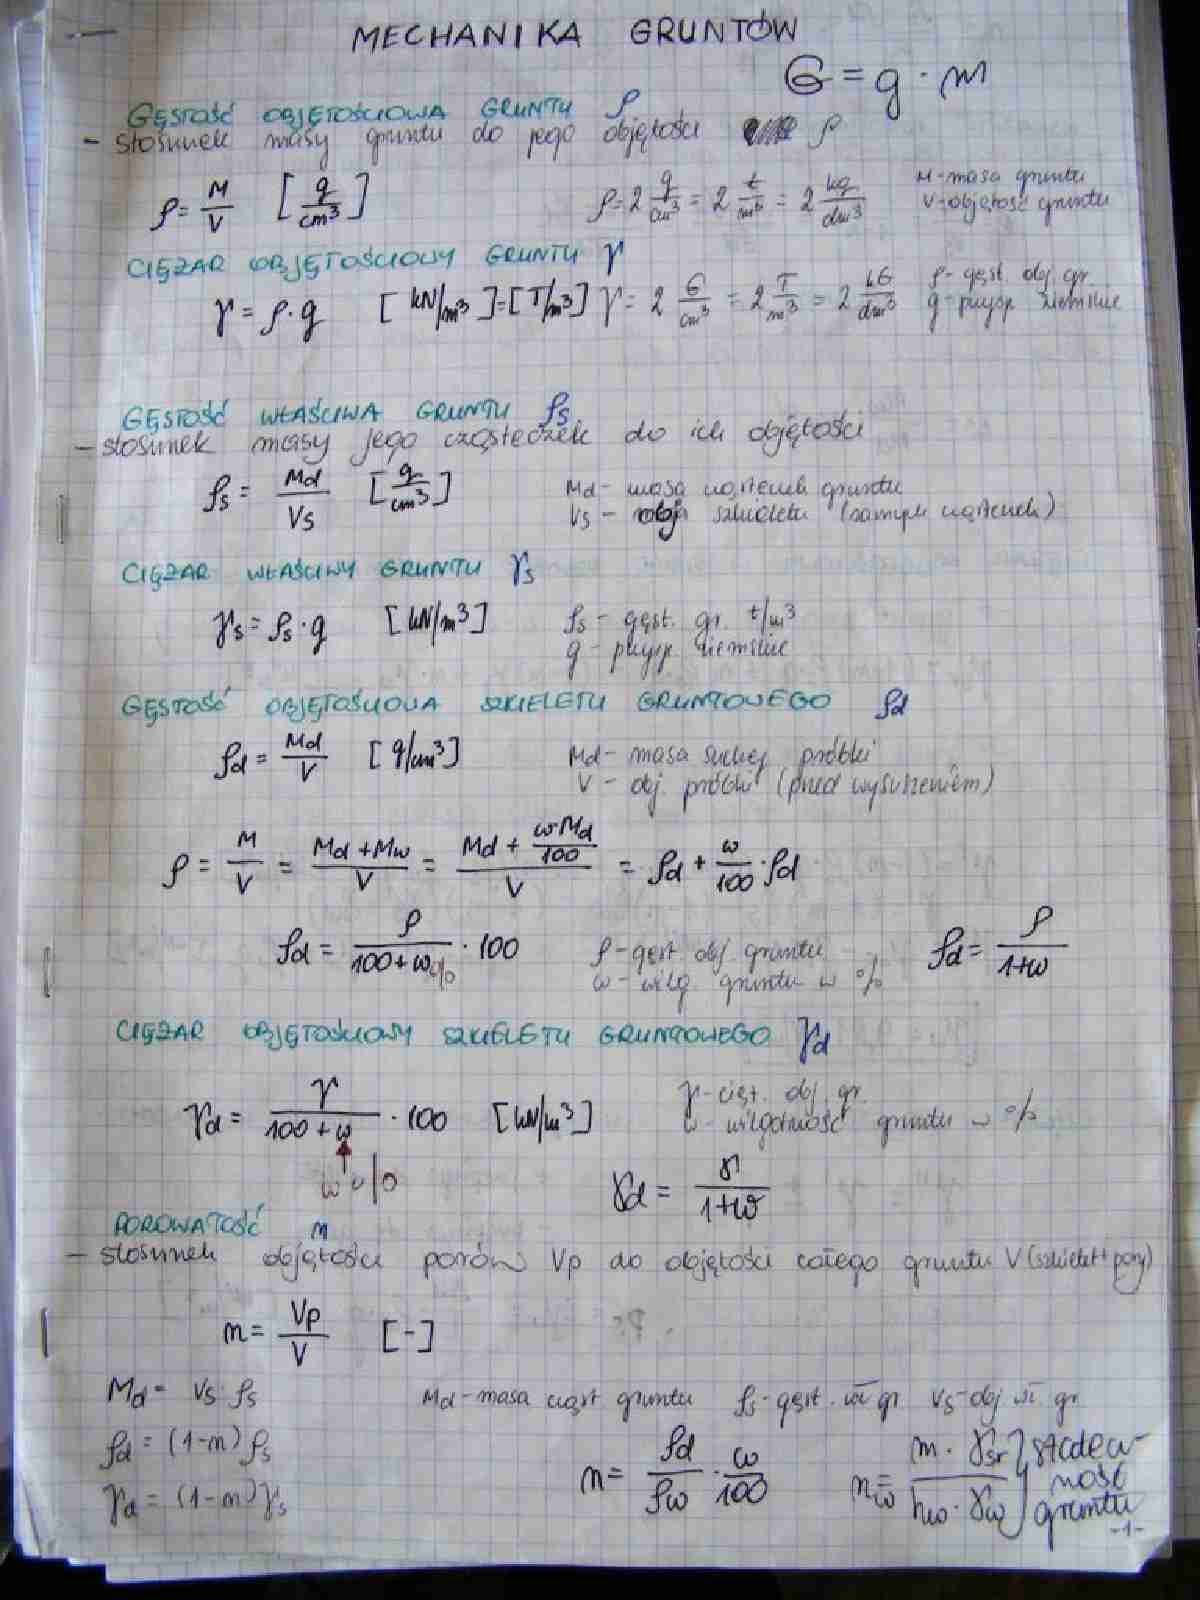 MECHANIKA GRUNTÓW
G = g · m
GĘSTOŚĆ OBJĘTOŚCIOWA GRUNTU ρ
- stosunek masy gruntu do jego objętości ρ
ρ = M/V [g/cm³] ρ = 2 g/cm³ = 2 t/cm³ = 2 kg/dm³ M - masa gruntu
V - objętość gruntu
CIĘŻAR OBJĘTOŚCIOWY GRUNTU γ
γ = ρ · g [kN/m³] = [T/m³] γ = 2 G/cm³ = 2 T/m³ = 2 kG/dm³ ρ - gęst. obj. gr.
g - przysp. ziemskie
GĘSTOŚĆ WŁAŚCIWA GRUNTU ρs
- stosunek masy jego cząsteczek do ich objętości
ρs = Md/Vs [g/cm³] Md - masa cząsteczek gruntu
Vs - obj szkieletu (samych cząsteczek)
CIĘŻAR WŁAŚCIWY GRUNTU γs
γs = ρs · g [kN/m³] ρs - gęst. gr. t/m³
g - przysp. ziemskie
GĘSTOŚĆ OBJĘTOŚCIOWA SZKIELETU GRUNTOWEGO ρd
ρd = Md/V [g/cm³] Md - masa suchej próbki
V - obj. próbki (przed wysuszeniem)
ρ = M/V = (Md + Mw)/V = (Md + w·Md/100)/V = ρd + w/100 · ρd
ρd = ρ/(100 + w%) · 100 ρ - gęst. obj. gruntu ρd = ρ/(1+w)
w - wilg. gruntu w %
CIĘŻAR OBJĘTOŚCIOWY SZKIELETU GRUNTOWEGO γd
γd = γ/(100 + w) · 100 [kN/m³] γ - cięż. obj. gr.
w - wilgotność gruntu w %
w % γd = γ/(1+w)
POROWATOŚĆ n
- stosunek objętości porów Vp do objętości całego gruntu V (szkielet + pory)
n = Vp/V [-]
Md = Vs · ρs Md - masa cząst gruntu ρs - gęst. wł gr Vs - obj wł. gr
ρd = (1-n) ρs
γd = (1-n) γs
n = ρd/ρw · w/100
gruntu
-1-